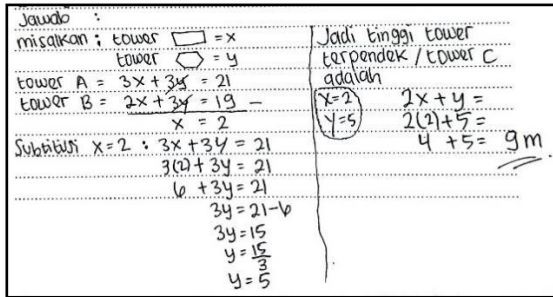 Jawab :
misalkan : tower ▭ = x
tower ⬡ = y
tower A = 3x + 3y = 21
tower B = 2x + 3y = 19 -
x = 2
Subtitusi x=2 : 3x + 3y = 21
3(2) + 3y = 21
6 + 3y = 21
3y = 21-6
3y = 15
y = 15/3
y = 5
Jadi tinggi tower
terpendek / tower C
adalah
x=2
y=5
2x + y =
2(2)+5 =
4 + 5 = 9 m.